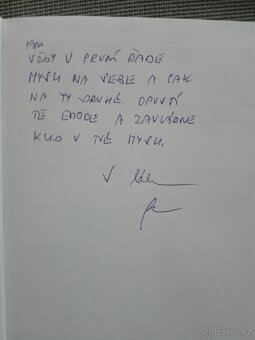 VŽDY V PRVNÍ ŘADĚ
MYSLI NA SEBE A PAK
NA TY DRUHÉ. OPUSTÍ
TĚ EMOCE A ZAVLÁDNE
KLID V TVÉ MYSLI.
V
Bazos.cz